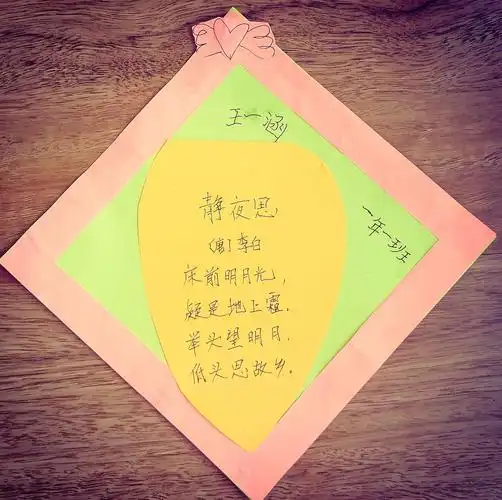 王一涵
一年一班
静夜思
（唐）李白
床前明月光，
疑是地上霜.
举头望明月.
低头思故乡.